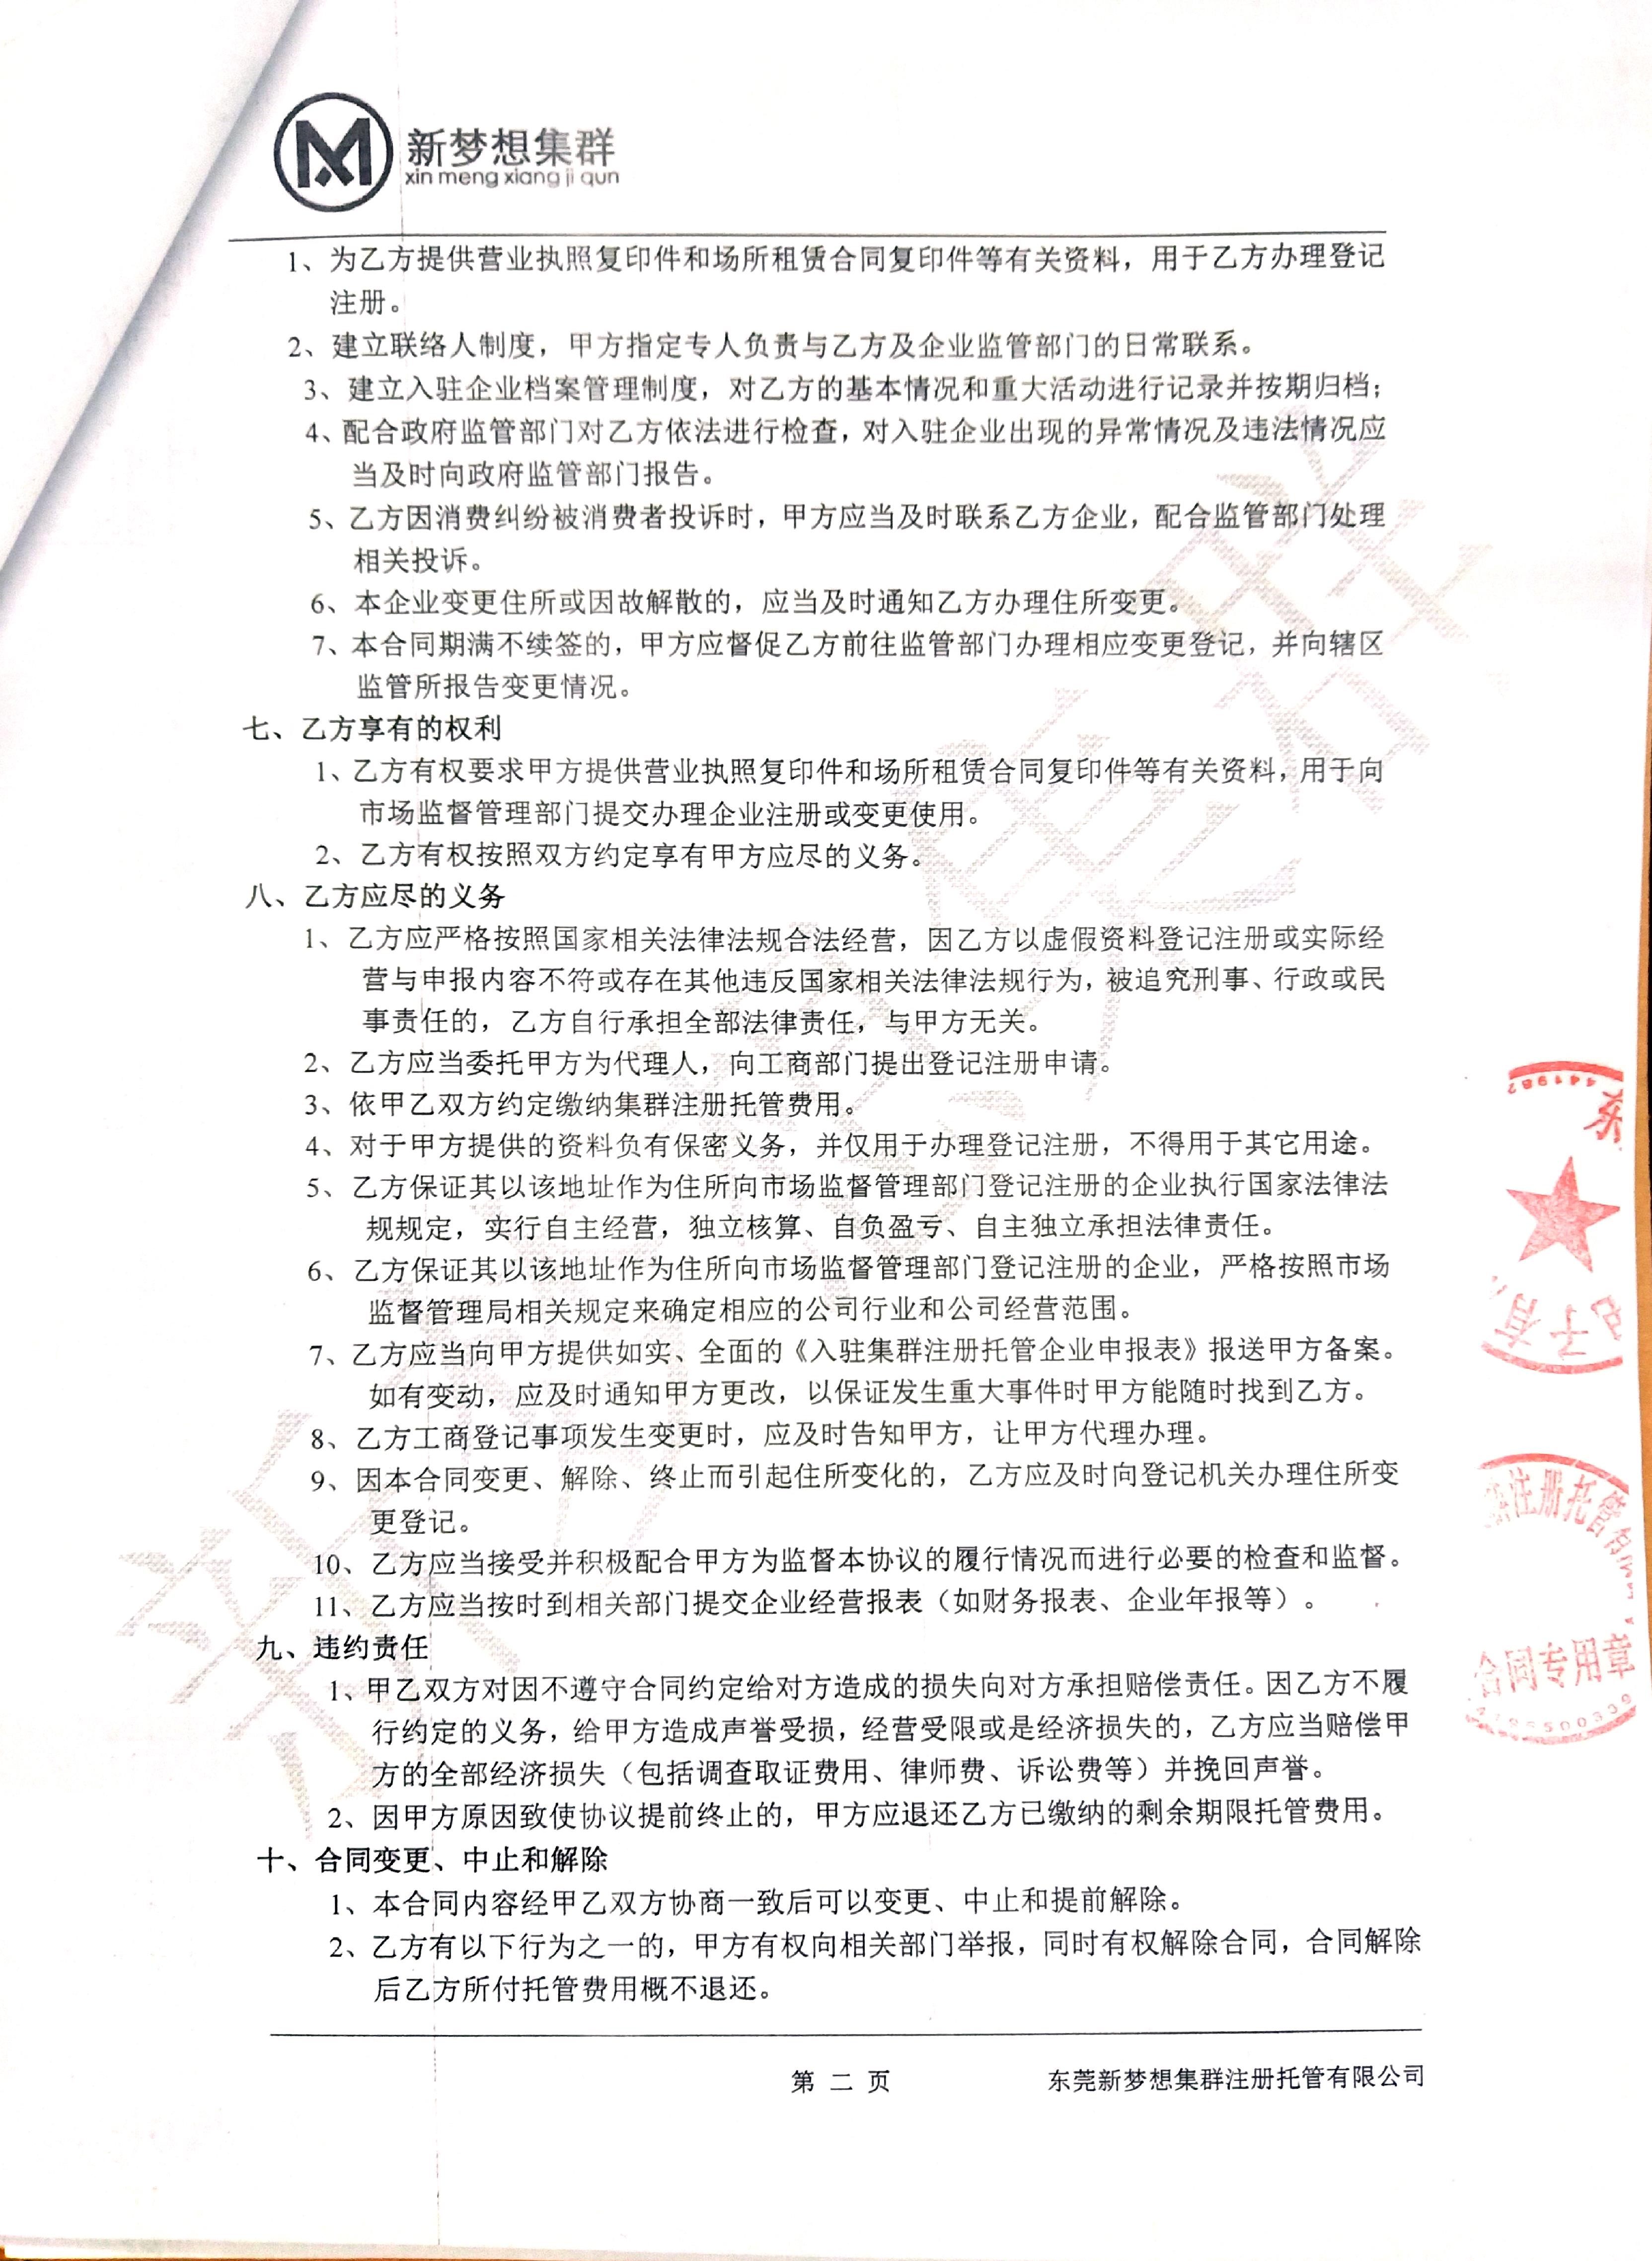 新梦想集群
xin meng xiang ji qun
1、为乙方提供营业执照复印件和场所租赁合同复印件等有关资料，用于乙方办理登记
注册。
2、建立联络人制度，甲方指定专人负责与乙方及企业监管部门的日常联系。
3、建立入驻企业档案管理制度，对乙方的基本情况和重大活动进行记录并按期归档；
4、配合政府监管部门对乙方依法进行检查，对入驻企业出现的异常情况及违法情况应
当及时向政府监管部门报告。
5、乙方因消费纠纷被消费者投诉时，甲方应当及时联系乙方企业，配合监管部门处理
相关投诉。
6、本企业变更住所或因故解散的，应当及时通知乙方办理住所变更。
7、本合同期满不续签的，甲方应督促乙方前往监管部门办理相应变更登记，并向辖区
监管所报告变更情况。
七、乙方享有的权利
1、乙方有权要求甲方提供营业执照复印件和场所租赁合同复印件等有关资料，用于向
市场监督管理部门提交办理企业注册或变更使用。
2、乙方有权按照双方约定享有甲方应尽的义务。
八、乙方应尽的义务
1、乙方应严格按照国家相关法律法规合法经营，因乙方以虚假资料登记注册或实际经
营与申报内容不符或存在其他违反国家相关法律法规行为，被追究刑事、行政或民
事责任的，乙方自行承担全部法律责任，与甲方无关。
2、乙方应当委托甲方为代理人，向工商部门提出登记注册申请。
3、依甲乙双方约定缴纳集群注册托管费用。
4、对于甲方提供的资料负有保密义务，并仅用于办理登记注册，不得用于其它用途。
5、乙方保证其以该地址作为住所向市场监督管理部门登记注册的企业执行国家法律法
规规定，实行自主经营，独立核算、自负盈亏、自主独立承担法律责任。
6、乙方保证其以该地址作为住所向市场监督管理部门登记注册的企业，严格按照市场
监督管理局相关规定来确定相应的公司行业和公司经营范围。
7、乙方应当向甲方提供如实、全面的《入驻集群注册托管企业申报表》报送甲方备案。
如有变动，应及时通知甲方更改，以保证发生重大事件时甲方能随时找到乙方。
8、乙方工商登记事项发生变更时，应及时告知甲方，让甲方代理办理。
9、因本合同变更、解除、终止而引起住所变化的，乙方应及时向登记机关办理住所变
更登记。
10、乙方应当接受并积极配合甲方为监督本协议的履行情况而进行必要的检查和监督。
11、乙方应当按时到相关部门提交企业经营报表（如财务报表、企业年报等）。
九、违约责任
1、甲乙双方对因不遵守合同约定给对方造成的损失向对方承担赔偿责任。因乙方不履
行约定的义务，给甲方造成声誉受损，经营受限或是经济损失的，乙方应当赔偿甲
方的全部经济损失（包括调查取证费用、律师费、诉讼费等）并挽回声誉。
2、因甲方原因致使协议提前终止的，甲方应退还乙方已缴纳的剩余期限托管费用。
十、合同变更、中止和解除
1、本合同内容经甲乙双方协商一致后可以变更、中止和提前解除。
2、乙方有以下行为之一的，甲方有权向相关部门举报，同时有权解除合同，合同解除
后乙方所付托管费用概不退还。
第 二 页
东莞新梦想集群注册托管有限公司
新梦想集群
441982
东
电子有
注册托管有限
合同专用章